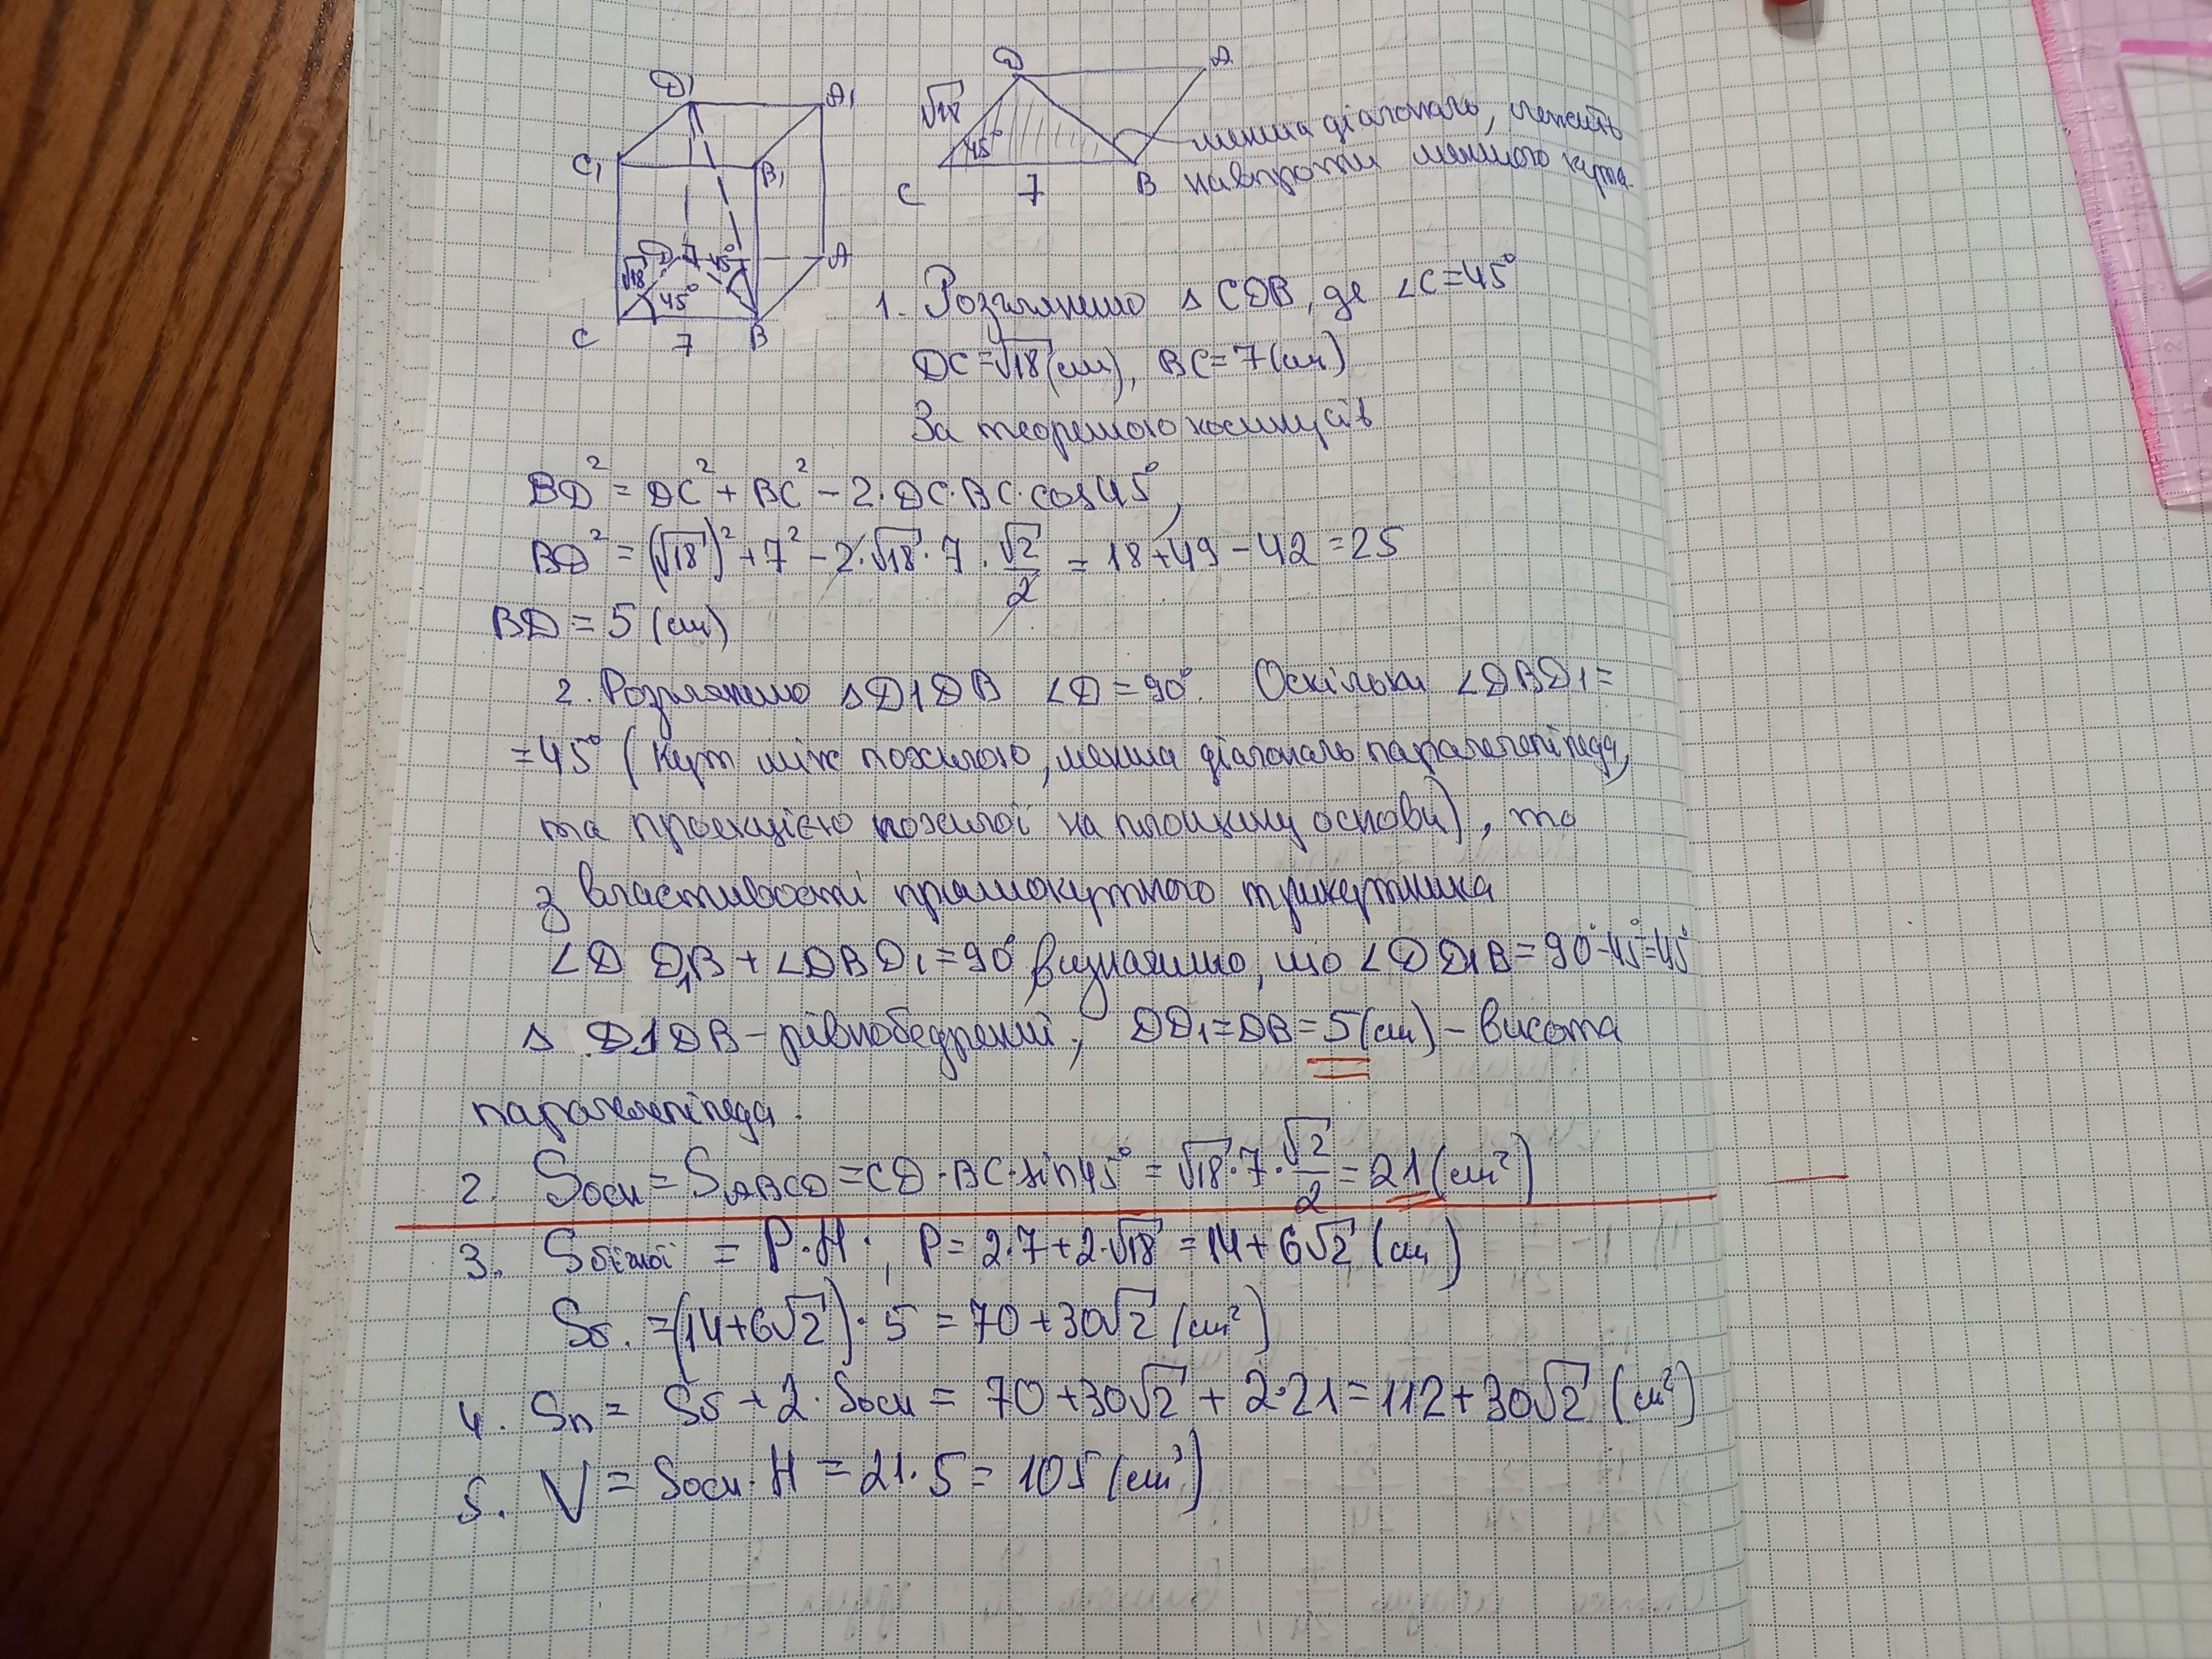 D₁ A₁
C₁ B₁
√18 D 45° A
45°
C 7 B
D A
√18
45°
C 7 B
менша діагональ, лежить
навпроти меншого кута.
1. Розглянемо Δ CDB, де ∠C=45°
DC=√18(см), BC=7(см)
За теоремою косинусів
BD² = DC² + BC² – 2·DC·BC·cos45°,
BD² = (√18)² + 7² – 2·√18·7·√2/2 = 18+49–42=25
BD = 5 (см)
2. Розглянемо ΔD1DB ∠D=90°. Оскільки ∠DBD₁=
=45° (Кут між похилою, менша діагональ паралелепіпеда,
та проекцією похилої на площину основи), то
з властивості прямокутного трикутника
∠D D₁B + ∠DBD₁=90° визначимо, що ∠DD1B=90°-45°=45°
Δ D1DB – рівнобедрений; DD₁=DB=5(см) – висота
паралелепіпеда.
2. Sосн = SABCD = CD·BC·sin45° = √18·7·√2/2 = 21 (см²)
3. Sбічної = P·H; P = 2·7+2·√18 = 14+6√2 (см)
Sб. =(14+6√2)·5 = 70+30√2 (см²)
4. Sп = Sб + 2·Sосн = 70+30√2 + 2·21 = 112+30√2 (см²)
5. V = Sосн·H = 21·5 = 105 (см³)